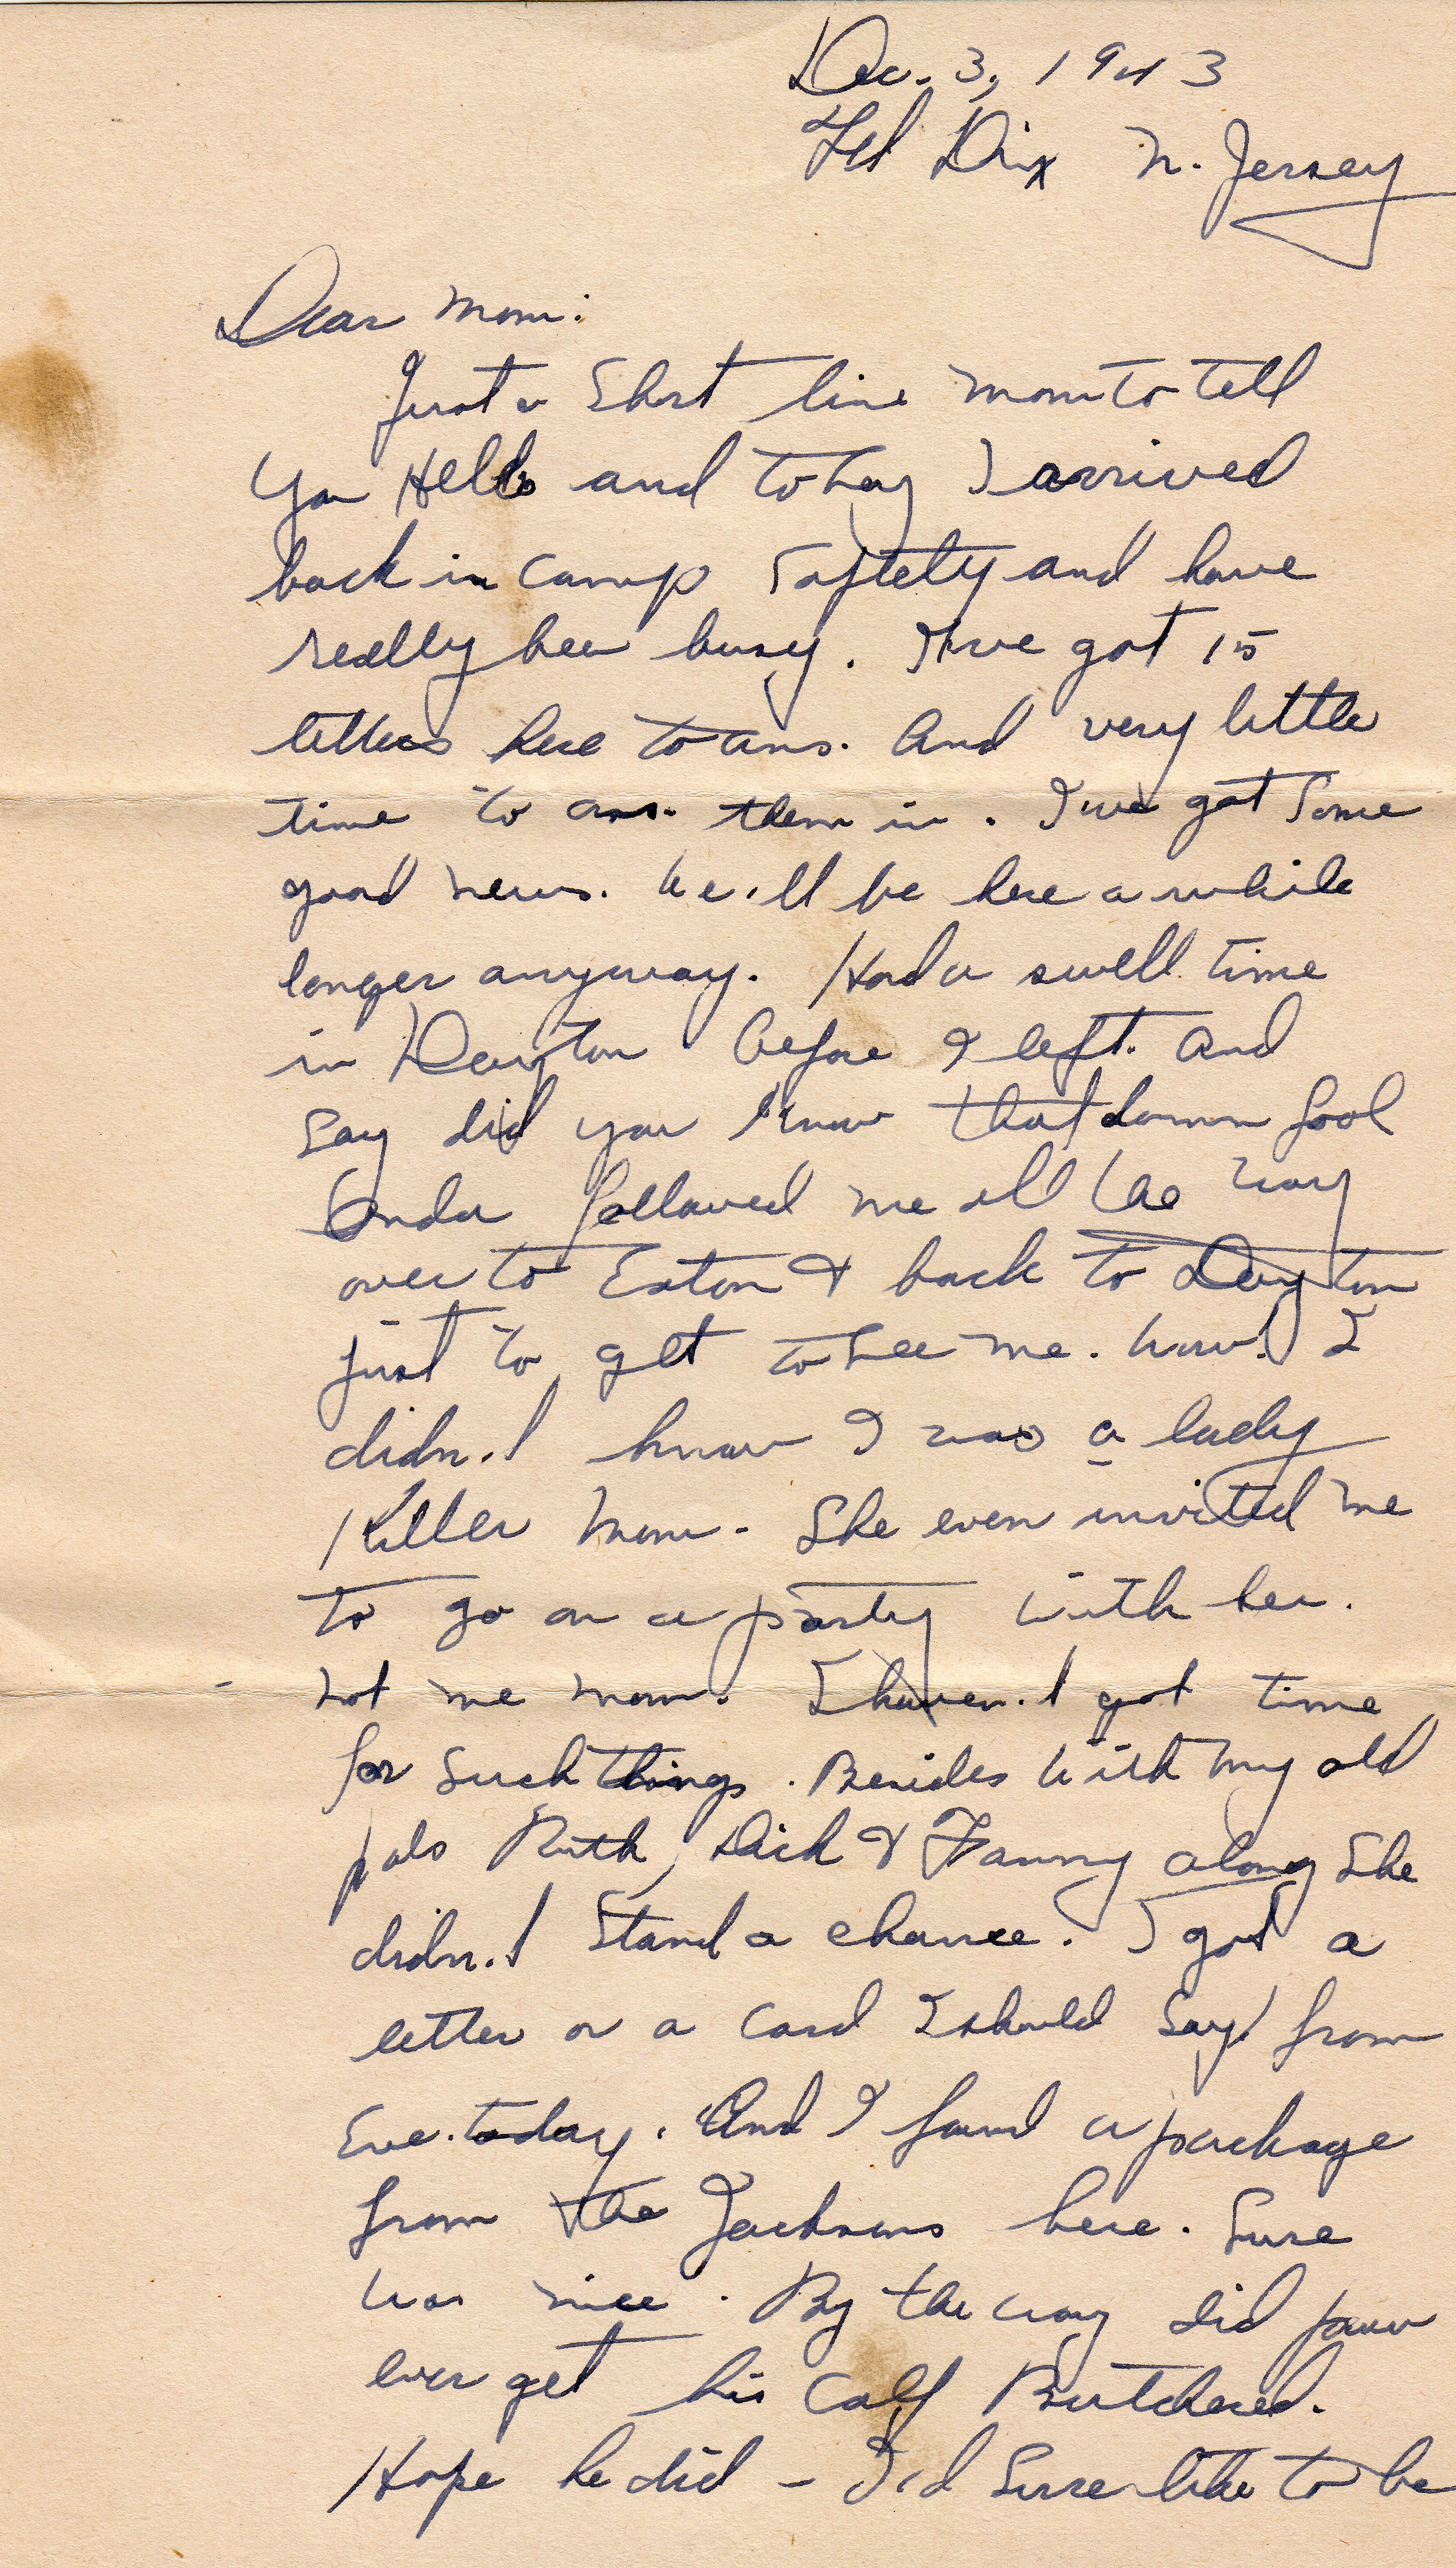 Dec. 3, 1943
Ft Dix N. Jersey
Dear Mom:
Just a Short line mom to tell
you Hello and to Say I arrived
back in camp Saftely and have
really bee busy. I've got 15
letters here to ans. And very little
time to ans. them in. I've got Some
good news. We'll be here a while
longer anyway. Had a swell time
in Dayton before I left. And
Say did you know that damm fool
followed me all the way
over to Eaton & back to Dayton
just to get to see me. Wow! I
didn't know I was a lady
Killer Mom. She even invited me
to go on a party with her.
Not me mom. I haven't got time
for Such things. Besides with my old
pals Ruth, Dick & Fanny along She
didn't Stand a chance. I got a
letter or a card I should Say! from
Eve. today. And I found a package
from the Jacksons here. Sure
was nice. By the way did paw
ever get his calf Butchered.
Hope he did – I'd Sure like to be